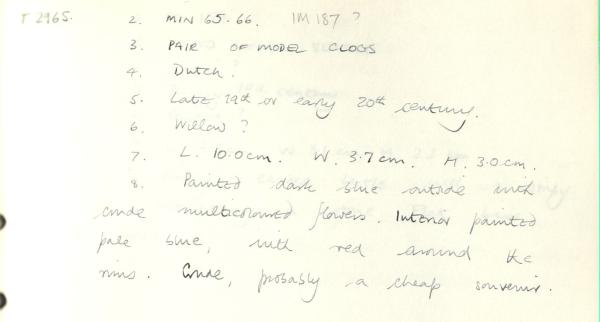 T 2965. 2. MIN 65.66. IM 187 ?
3. PAIR OF MODEL CLOGS
4. Dutch?
5. Late 19th or early 20th century.
6. Willow ?
7. L. 10.0cm. W. 3.7cm. H. 3.0cm.
8. Painted dark blue outside with
crude multicoloured flowers. Interior painted
pale blue, with red around the
rims. Crude, probably a cheap souvenir.